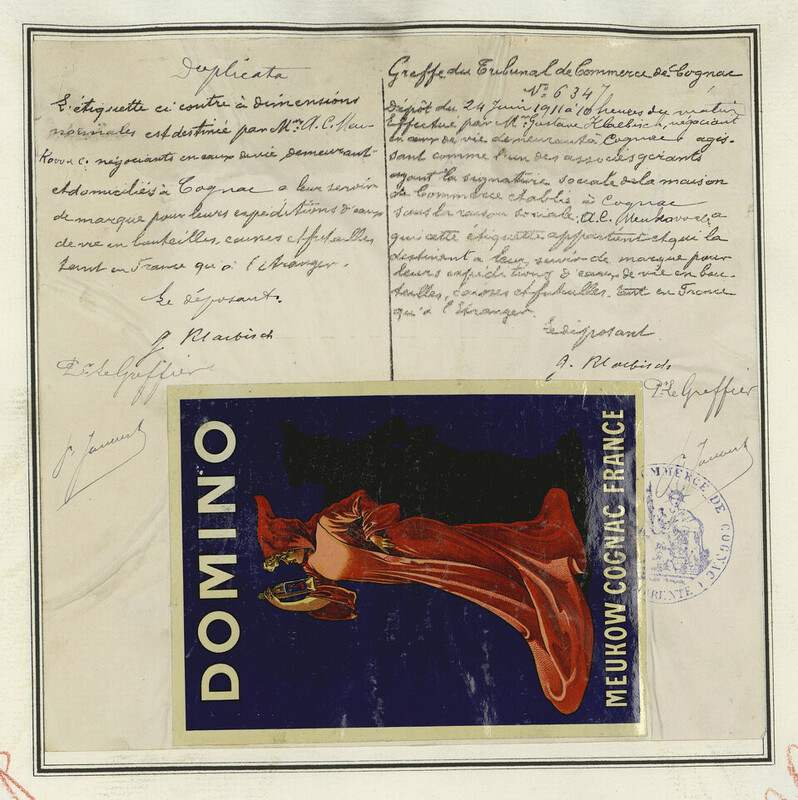 Duplicata
L'étiquette ci contre à dimensions
normales est destinée par Mrs A.C. Meu-
kow & C. négociants en eaux de vie, demeurant
et domiciliés à Cognac a leur servir
de marque pour leurs expéditions d'eaux
de vie en bouteilles, caisses et futailles
tant en France qu'à l'étranger.
Le déposant.
g. Klaebisch
Pr. Le Greffier
Greffe du Tribunal de Commerce de Cognac
No 6347
Dépôt du 24 Juin 1911 à 10 heures du matin
Effectué par Mr Gustave Klaebisch, négociant
en eaux de vie demeurant à Cognac, agis-
sant comme l'un des associés gérants
ayant la signature sociale de la maison
de Commerce établie à Cognac
sous la raison sociale, A.C. Meukow & C. a
qui cette étiquette appartient et qui la
destinent a leur servir de marque pour
leurs expéditions d'eaux de vie en bou-
teilles, caisses et futailles. tant en France
qu'à l'Etranger.
Le déposant
g. Klaebisch
Pr. Le Greffier
DOMINO
MEUKOW COGNAC FRANCE
MMERCE DE COGNAC
RENTE